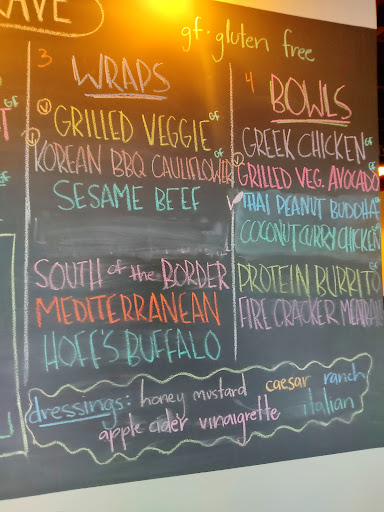 AVE
gf · gluten free
3
WRAPS
V GRILLED VEGGIE GF
V KOREAN BBQ CAULIFLOWER
SESAME BEEF
SOUTH of the BORDER
MEDITERRANEAN
HOFF'S BUFFALO
4
BOWLS
GREEK CHICKEN GF
V GRILLED VEG. AVOCADO GF
THAI PEANUT BUDDHA GF
COCONUT CURRY CHICKEN
PROTEIN BURRITO GF
FIRE CRACKER
dressings: honey mustard caesar ranch
apple cider vinaigrette italian